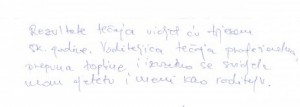 Rezultate tečaja vidjet ću tijekom
šk. godine. Voditeljica tečaja profesionalna,
prepuna topline i izuzetno se svidjela
mom djetetu i meni kao roditelju.